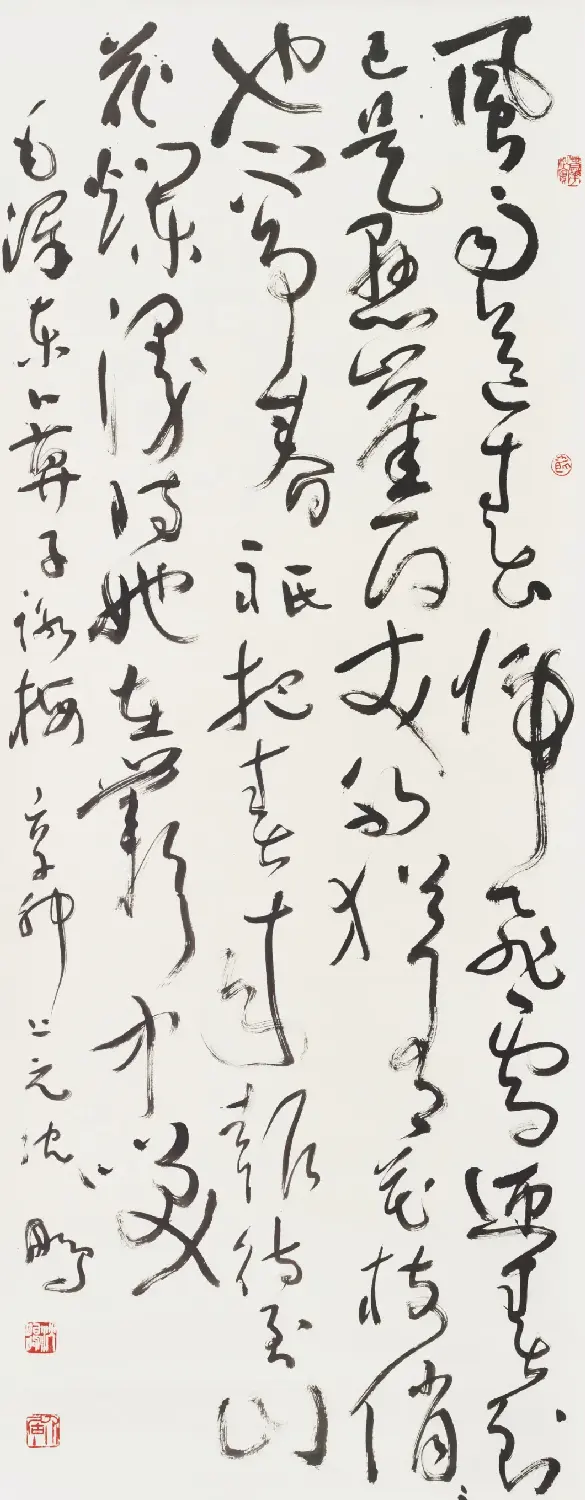 風雨送春歸飛雪迎春到
已是懸崖百丈冰猶有花枝俏〻
也不爭春祇把春來報待到山
花爛漫時她在叢中笑
毛澤東卜算子詠梅 辛卯上元沈鵬